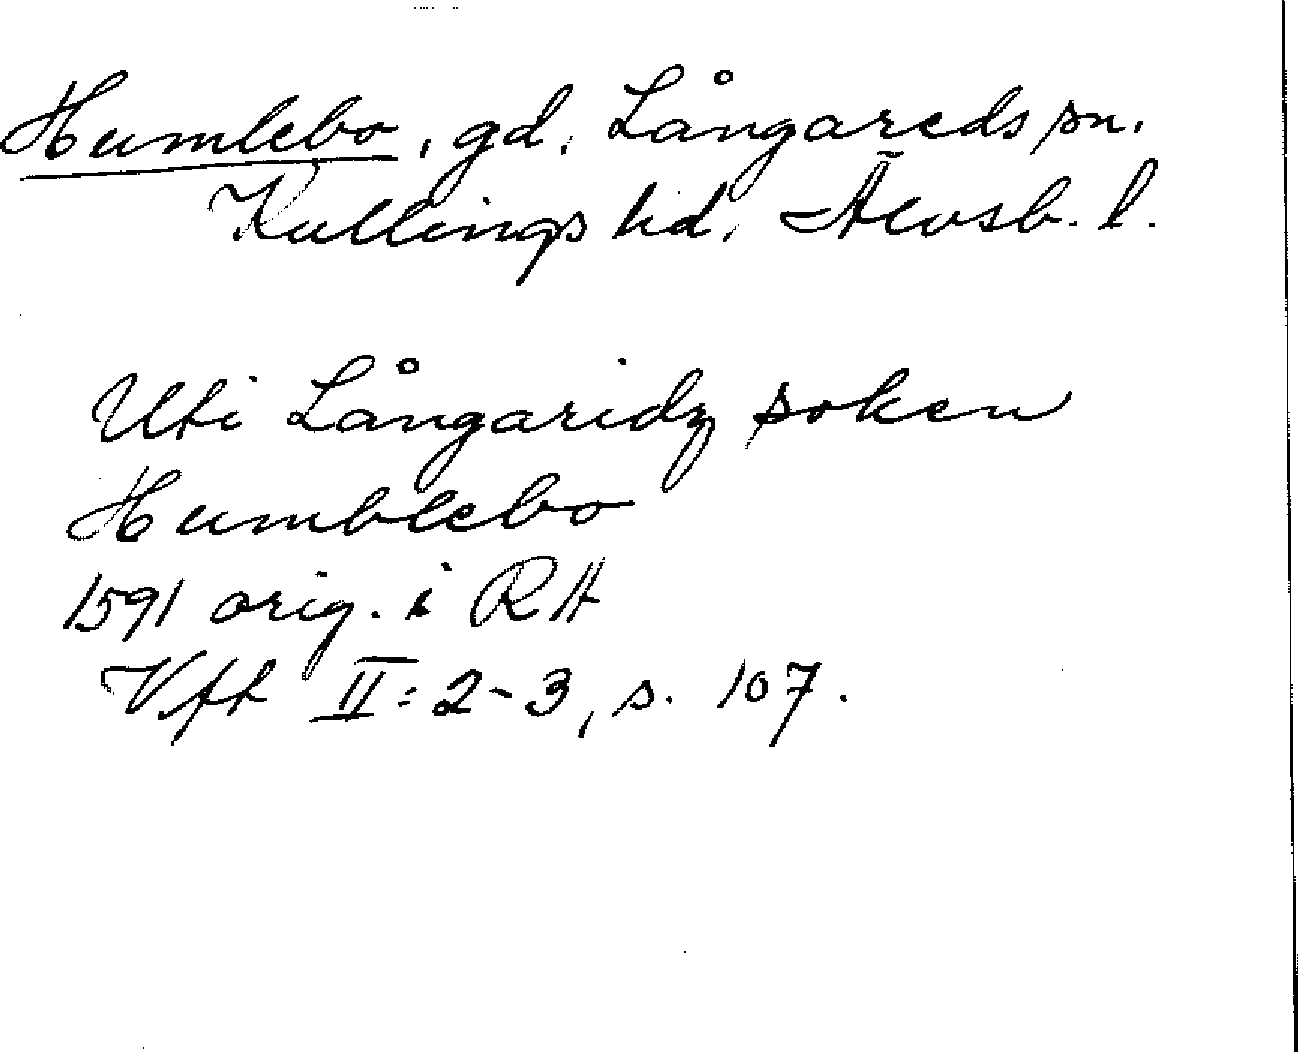 Humlebo, gd, Långareds sn.
Kullings hd, Älvsb. l.
Uti Långaridz soken
Humblebo
1591 orig. i RA
Vft II: 2-3, s. 107.